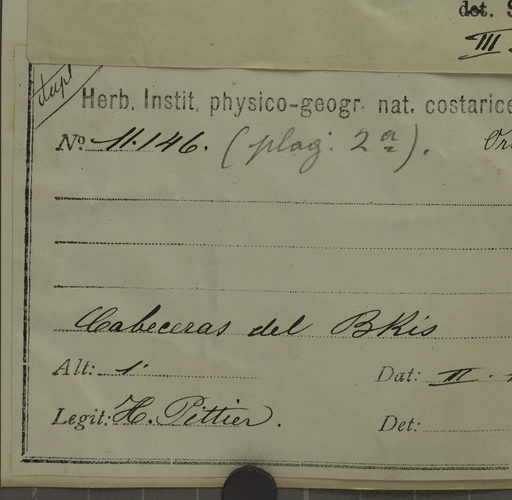 det. S
III
dupl
Herb. Instit. physico-geogr. nat. costarice
Nº 11.146. (plag: 2ª).
Cabeceras del BRis
Alt: 1' Dat: II.
Legit: H. Pittier. Det: